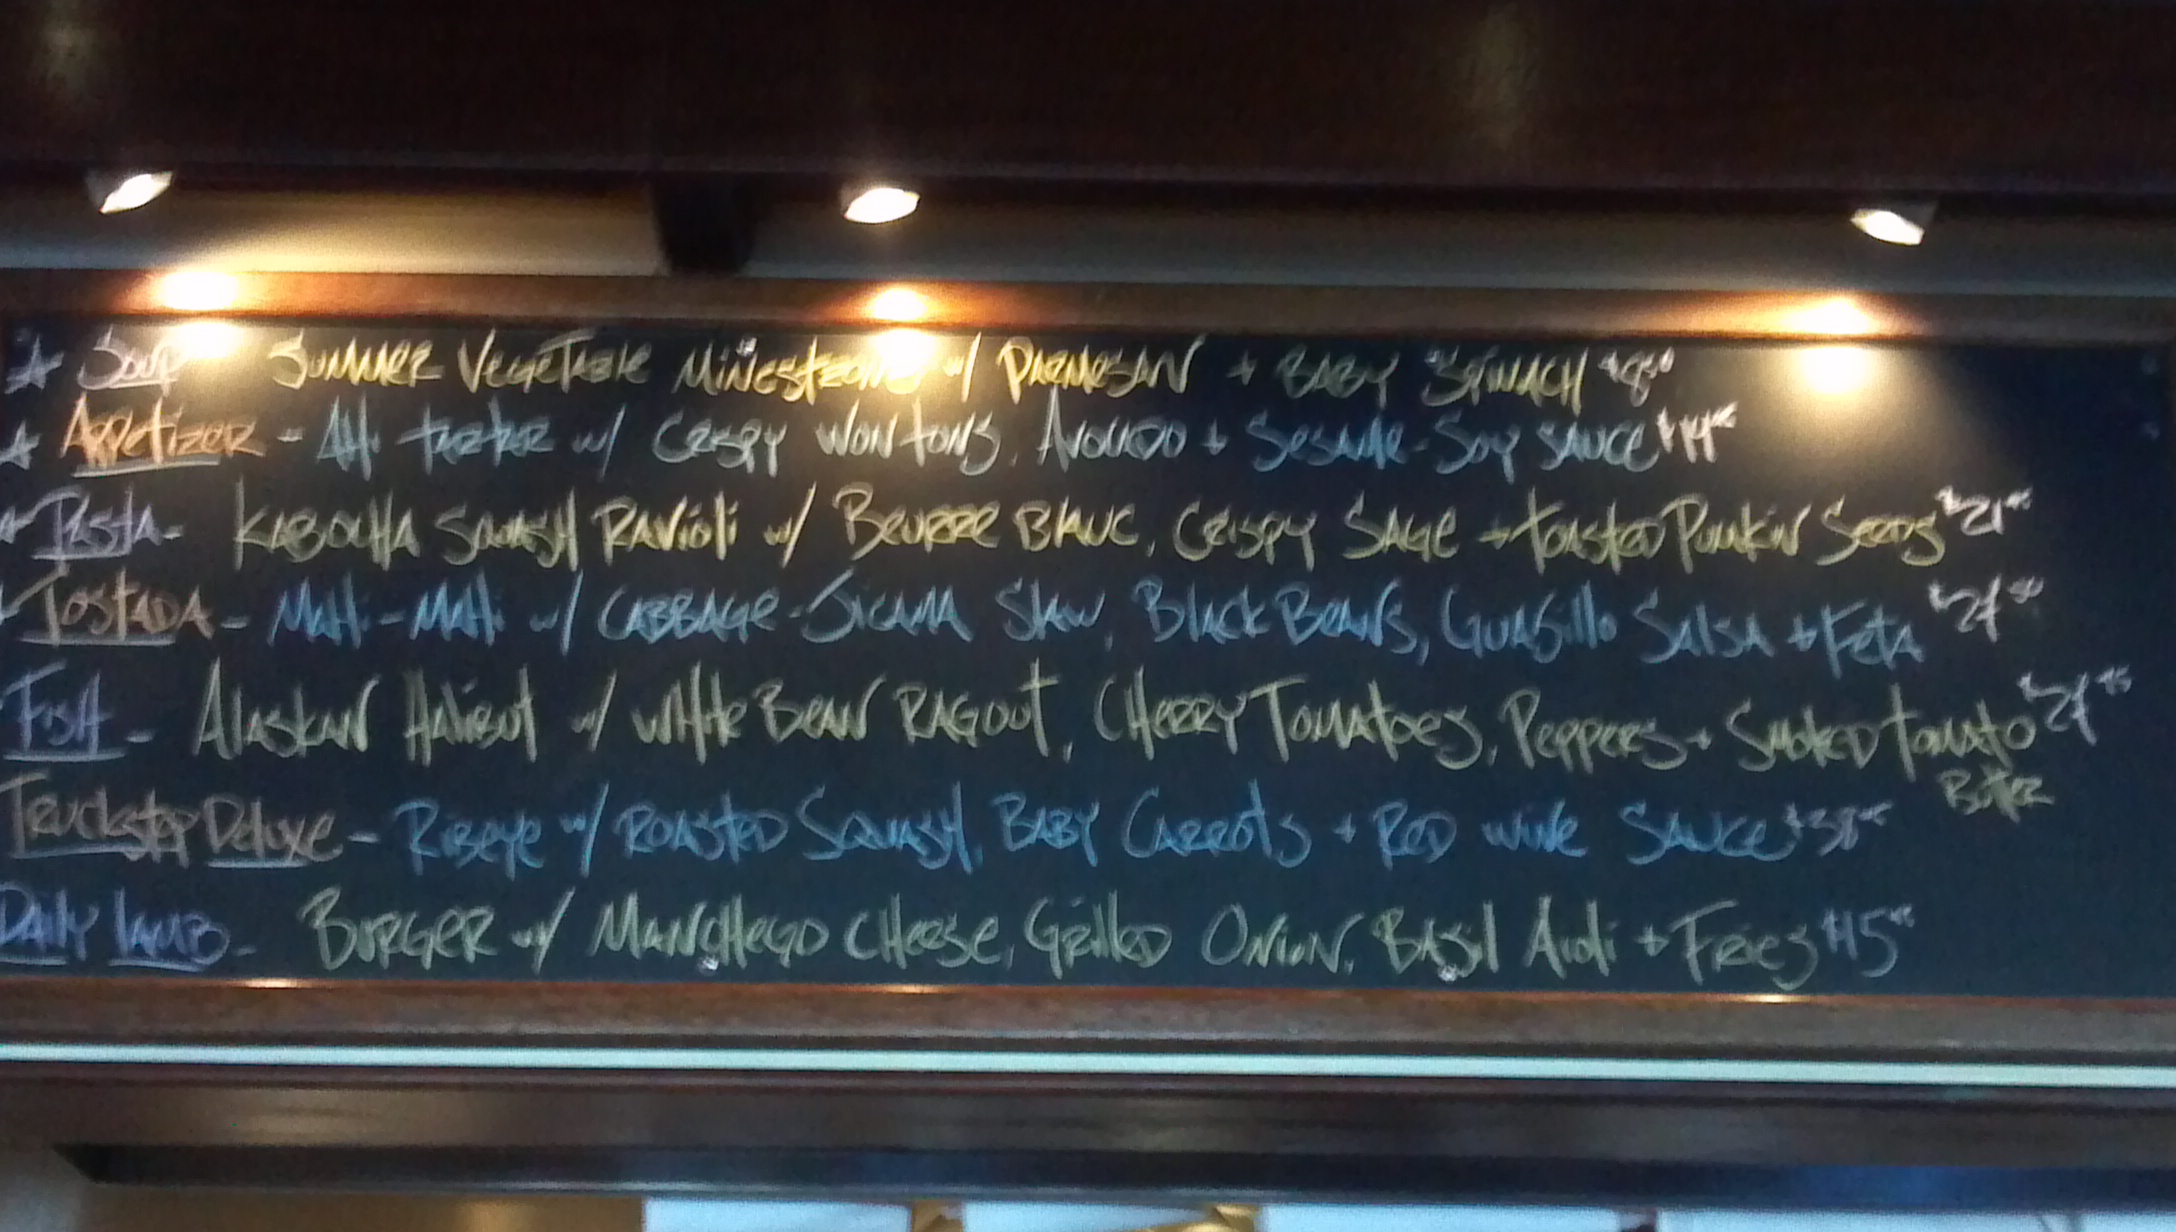 Soup Summer Vegetable Minestrone w/ Parmesan + Baby Spinach
Appetizer - Ahi tartar w/ Crispy Wontons, Avocado + Sesame-Soy Sauce
Pasta - Kabocha Squash Ravioli w/ Beurre Blanc, Crispy Sage + toasted Pumkin Seeds $21
Tostada - Mahi-Mahi w/ Cabbage-Jicama Slaw, Black Beans, Guajillo Salsa + Feta
Fish - Alaskan Halibut w/ White Bean Ragout, Cherry Tomatoes, Peppers + Smoked tomato
Butter
Truckstop Deluxe - Ribeye w/ Roasted Squash, Baby Carrots + Red wine Sauce $38
Daily Lamb - Burger w/ Manchego Cheese, Grilled Onion, Basil Aioli + Fries $15